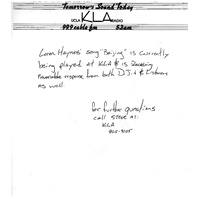 Tomorrow's Sound Today
UCLA KLA RADIO
99.9 cable fm 53 am
Loren Haynes' song "Beijing" is currently
being played at KLA & is receiving
favorable response from both D.J.'s & Listeners
as well.
for further questions
call Steve at:
KLA
825-9105